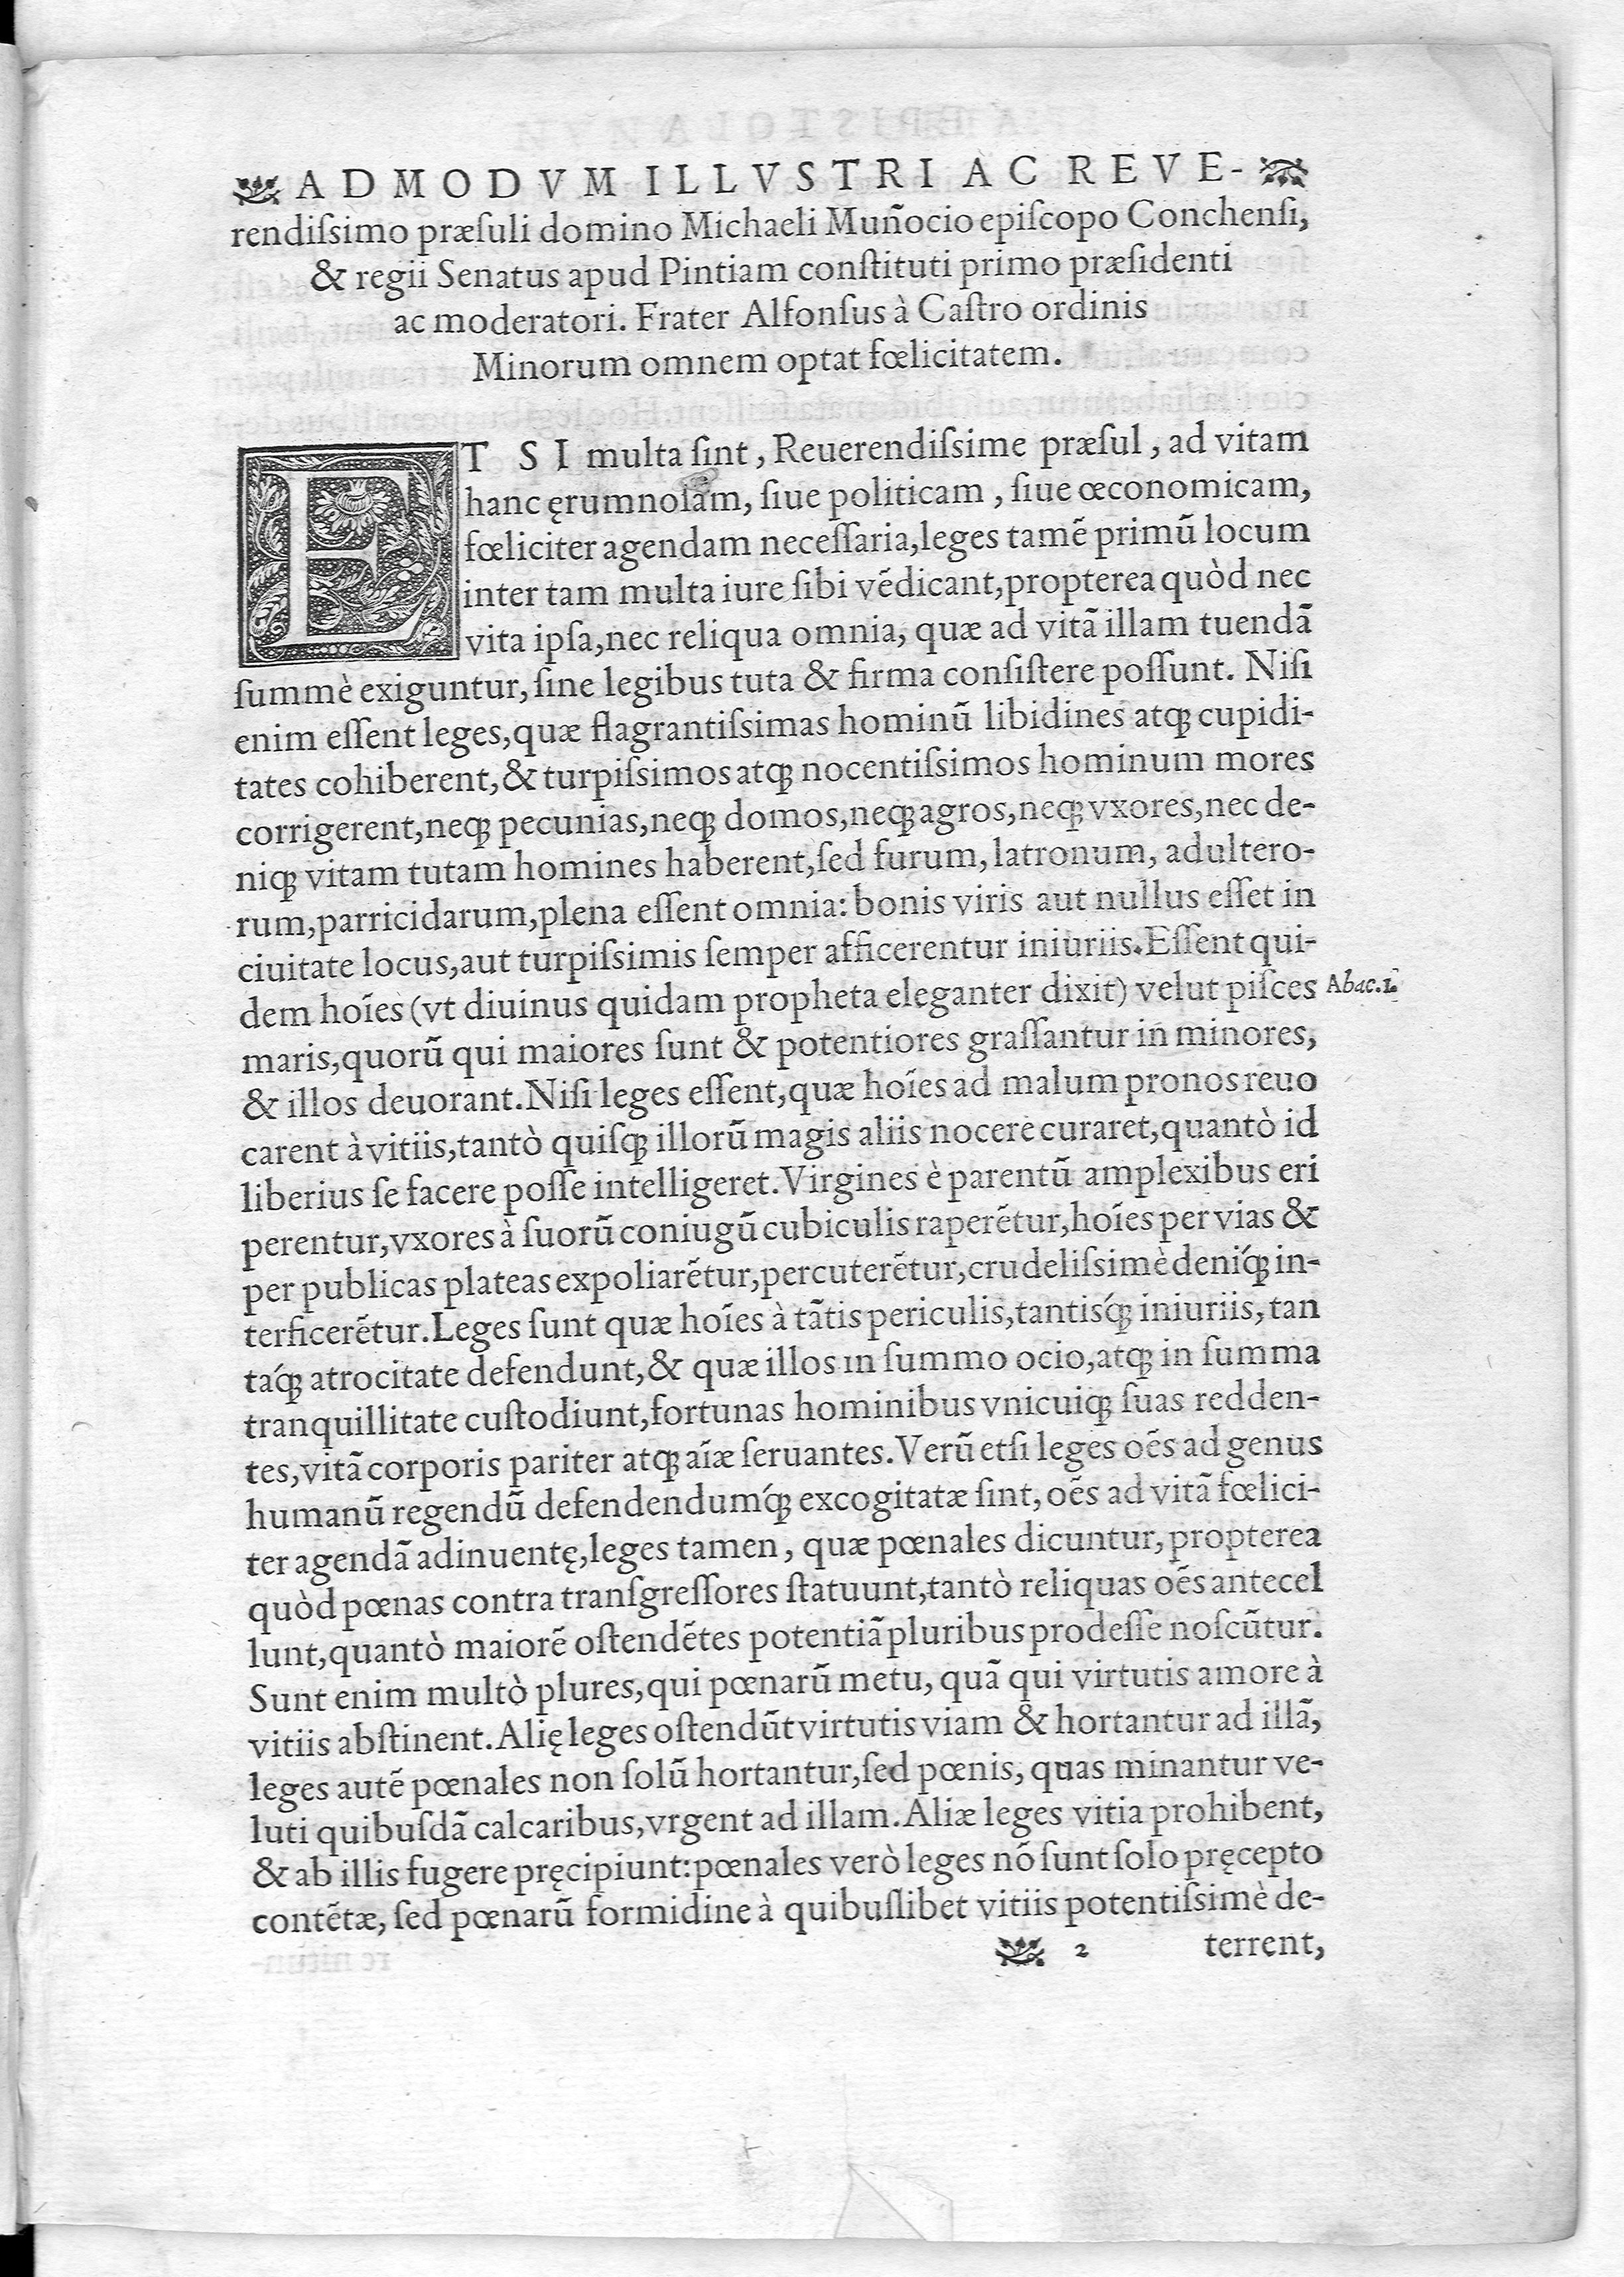 ADMODVM ILLVSTRI AC REVE-
rendiſsimo præſuli domino Michaeli Muñocio epiſcopo Conchenſi,
& regii Senatus apud Pintiam conſtituti primo præſidenti
ac moderatori. Frater Alfonſus à Caſtro ordinis
Minorum omnem optat fœlicitatem.
ET SI multa ſint, Reuerendiſsime præſul, ad vitam
hanc ęrumnoſam, ſiue politicam, ſiue œconomicam,
fœliciter agendam neceſſaria, leges tamẽ primũ locum
inter tam multa iure ſibi vẽdicant, propterea quòd nec
vita ipſa, nec reliqua omnia, quæ ad vitã illam tuendã
ſummè exiguntur, ſine legibus tuta & firma conſiſtere poſſunt. Niſi
enim eſſent leges, quæ flagrantiſsimas hominũ libidines atq; cupidi-
tates cohiberent, & turpiſsimos atq; nocentiſsimos hominum mores
corrigerent, neq; pecunias, neq; domos, neq; agros, neq; vxores, nec de-
niq; vitam tutam homines haberent, ſed furum, latronum, adultero-
rum, parricidarum, plena eſſent omnia: bonis viris aut nullus eſſet in
ciuitate locus, aut turpiſsimis ſemper afficerentur iniuriis. Eſſent qui-
dem hoı̃es (vt diuinus quidam propheta eleganter dixit) velut piſces
Abac.1.
maris, quorũ qui maiores ſunt & potentiores graſſantur in minores,
& illos deuorant. Niſi leges eſſent, quæ hoı̃es ad malum pronos reuo
carent à vitiis, tantò quiſq; illorũ magis aliis nocere curaret, quantò id
liberius ſe facere poſſe intelligeret. Virgines è parentũ amplexibus eri
perentur, vxores à ſuorũ coniugũ cubiculis raperẽtur, hoı̃es per vias &
per publicas plateas expoliarẽtur, percuterẽtur, crudeliſsimè deniq́; in-
terficerẽtur. Leges ſunt quæ hoı̃es à tãtis periculis, tantiſq́; iniuriis, tan
taq́; atrocitate defendunt, & quæ illos in ſummo ocio, atq; in ſumma
tranquillitate cuſtodiunt, fortunas hominibus vnicuiq; ſuas redden-
tes, vitã corporis pariter atq; aı̃æ ſeruantes. Verũ etſi leges oẽs ad genus
humanũ regendũ defendendumq́; excogitatæ ſint, oẽs ad vitã fœlici-
ter agendã adinuentę, leges tamen, quæ pœnales dicuntur, propterea
quòd pœnas contra tranſgreſſores ſtatuunt, tantò reliquas oẽs antecel
lunt, quantò maiorẽ oſtendẽtes potentiã pluribus prodeſſe noſcũtur.
Sunt enim multò plures, qui pœnarũ metu, quã qui virtutis amore à
vitiis abſtinent. Alię leges oſtendũt virtutis viam & hortantur ad illã,
leges autẽ pœnales non ſolũ hortantur, ſed pœnis, quas minantur ve-
luti quibuſdã calcaribus, vrgent ad illam. Aliæ leges vitia prohibent,
& ab illis fugere pręcipiunt: pœnales verò leges nõ ſunt ſolo pręcepto
contẽtæ, ſed pœnarũ formidine à quibuſlibet vitiis potentiſsimè de-
2 terrent,